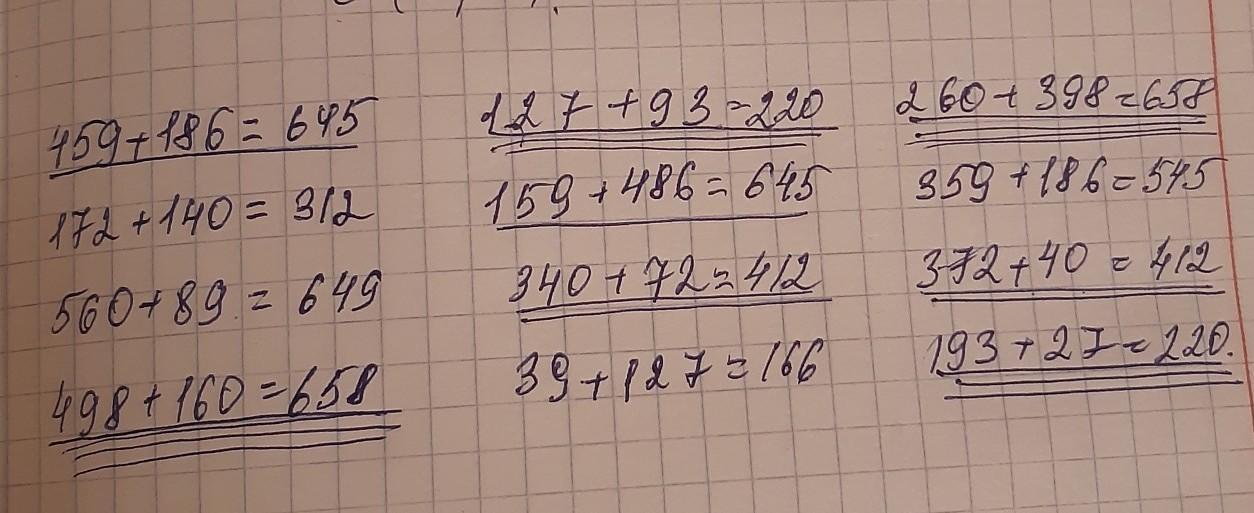 459+186=645
172+140=312
560+89=649
498+160=658
127+93=220
159+486=645
340+72=412
39+127=166
260+398=658
359+186=545
372+40=412
193+27=220.